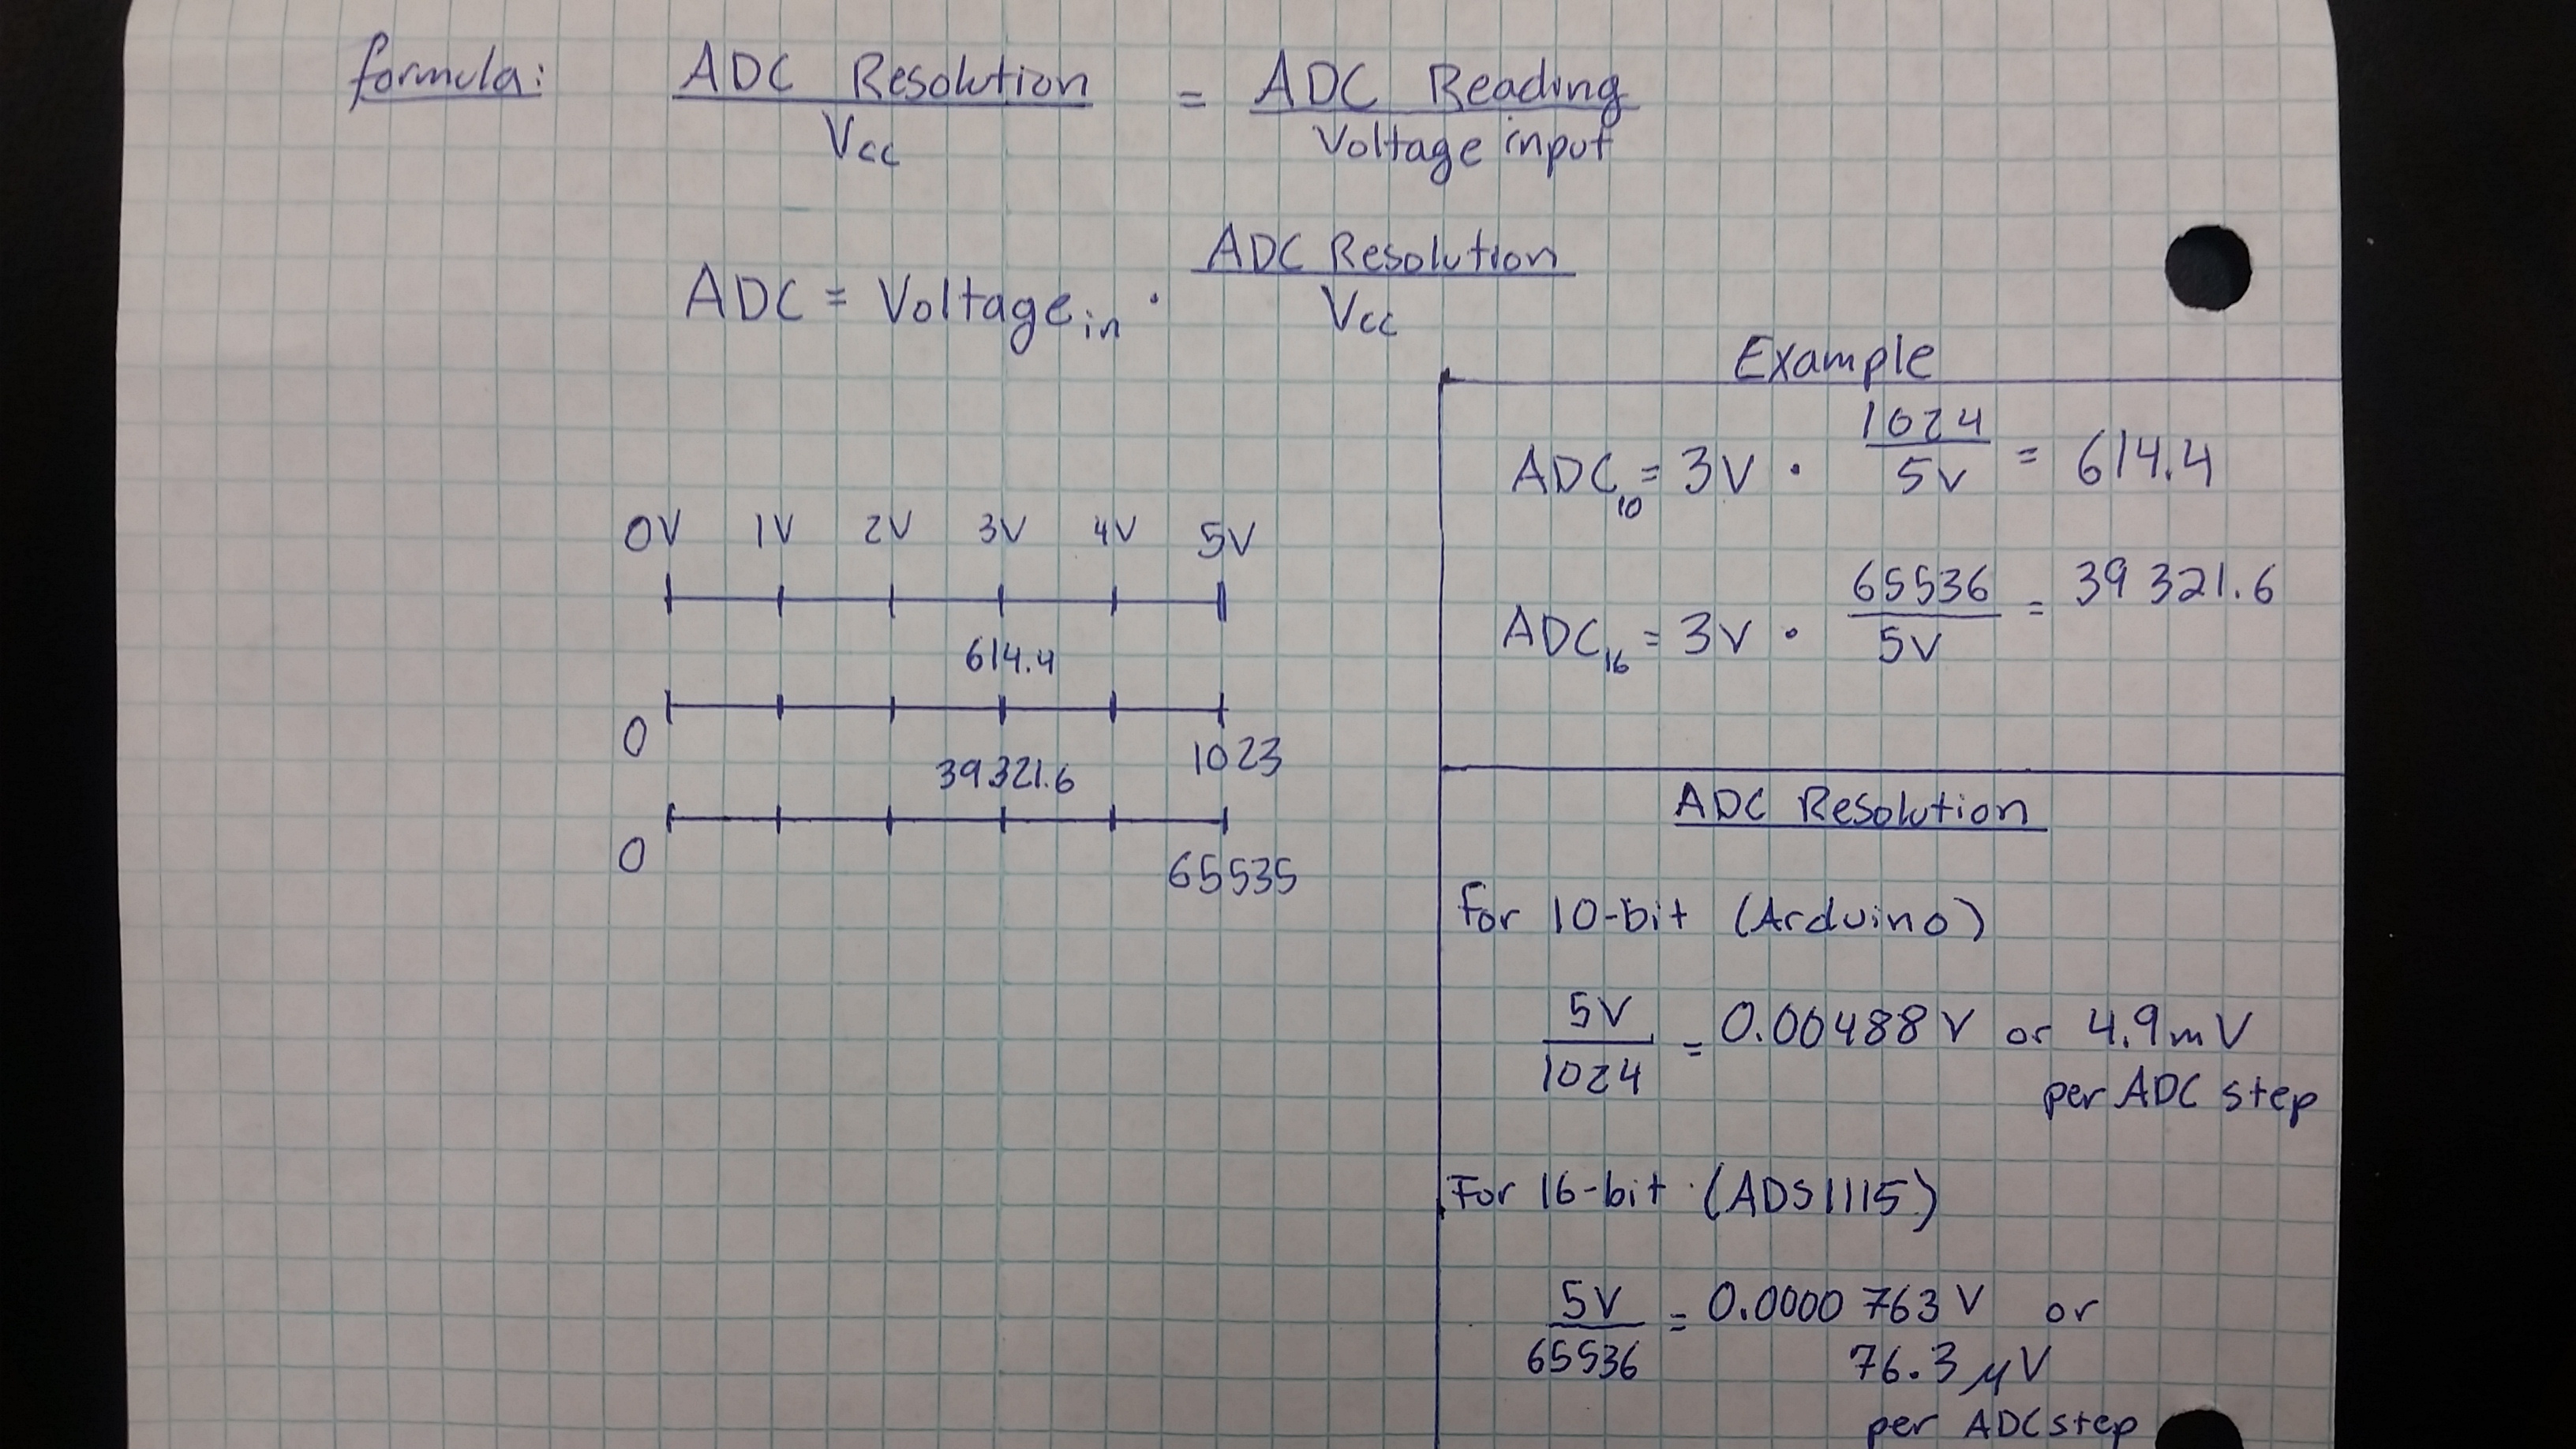 formula: ADC Resolution / Vcc = ADC Reading / Voltage input
ADC = Voltage in · ADC Resolution / Vcc
0V 1V 2V 3V 4V 5V
614.4
0 1023
39321.6
0 65535
Example
ADC10 = 3V · 1024 / 5V = 614.4
ADC16 = 3V · 65536 / 5V = 39 321.6
ADC Resolution
For 10-bit (Arduino)
5V / 1024 = 0.00488 V or 4.9mV
per ADC step
For 16-bit (ADS1115)
5V / 65536 = 0.0000 763 V or
76.3 μV
per ADC step